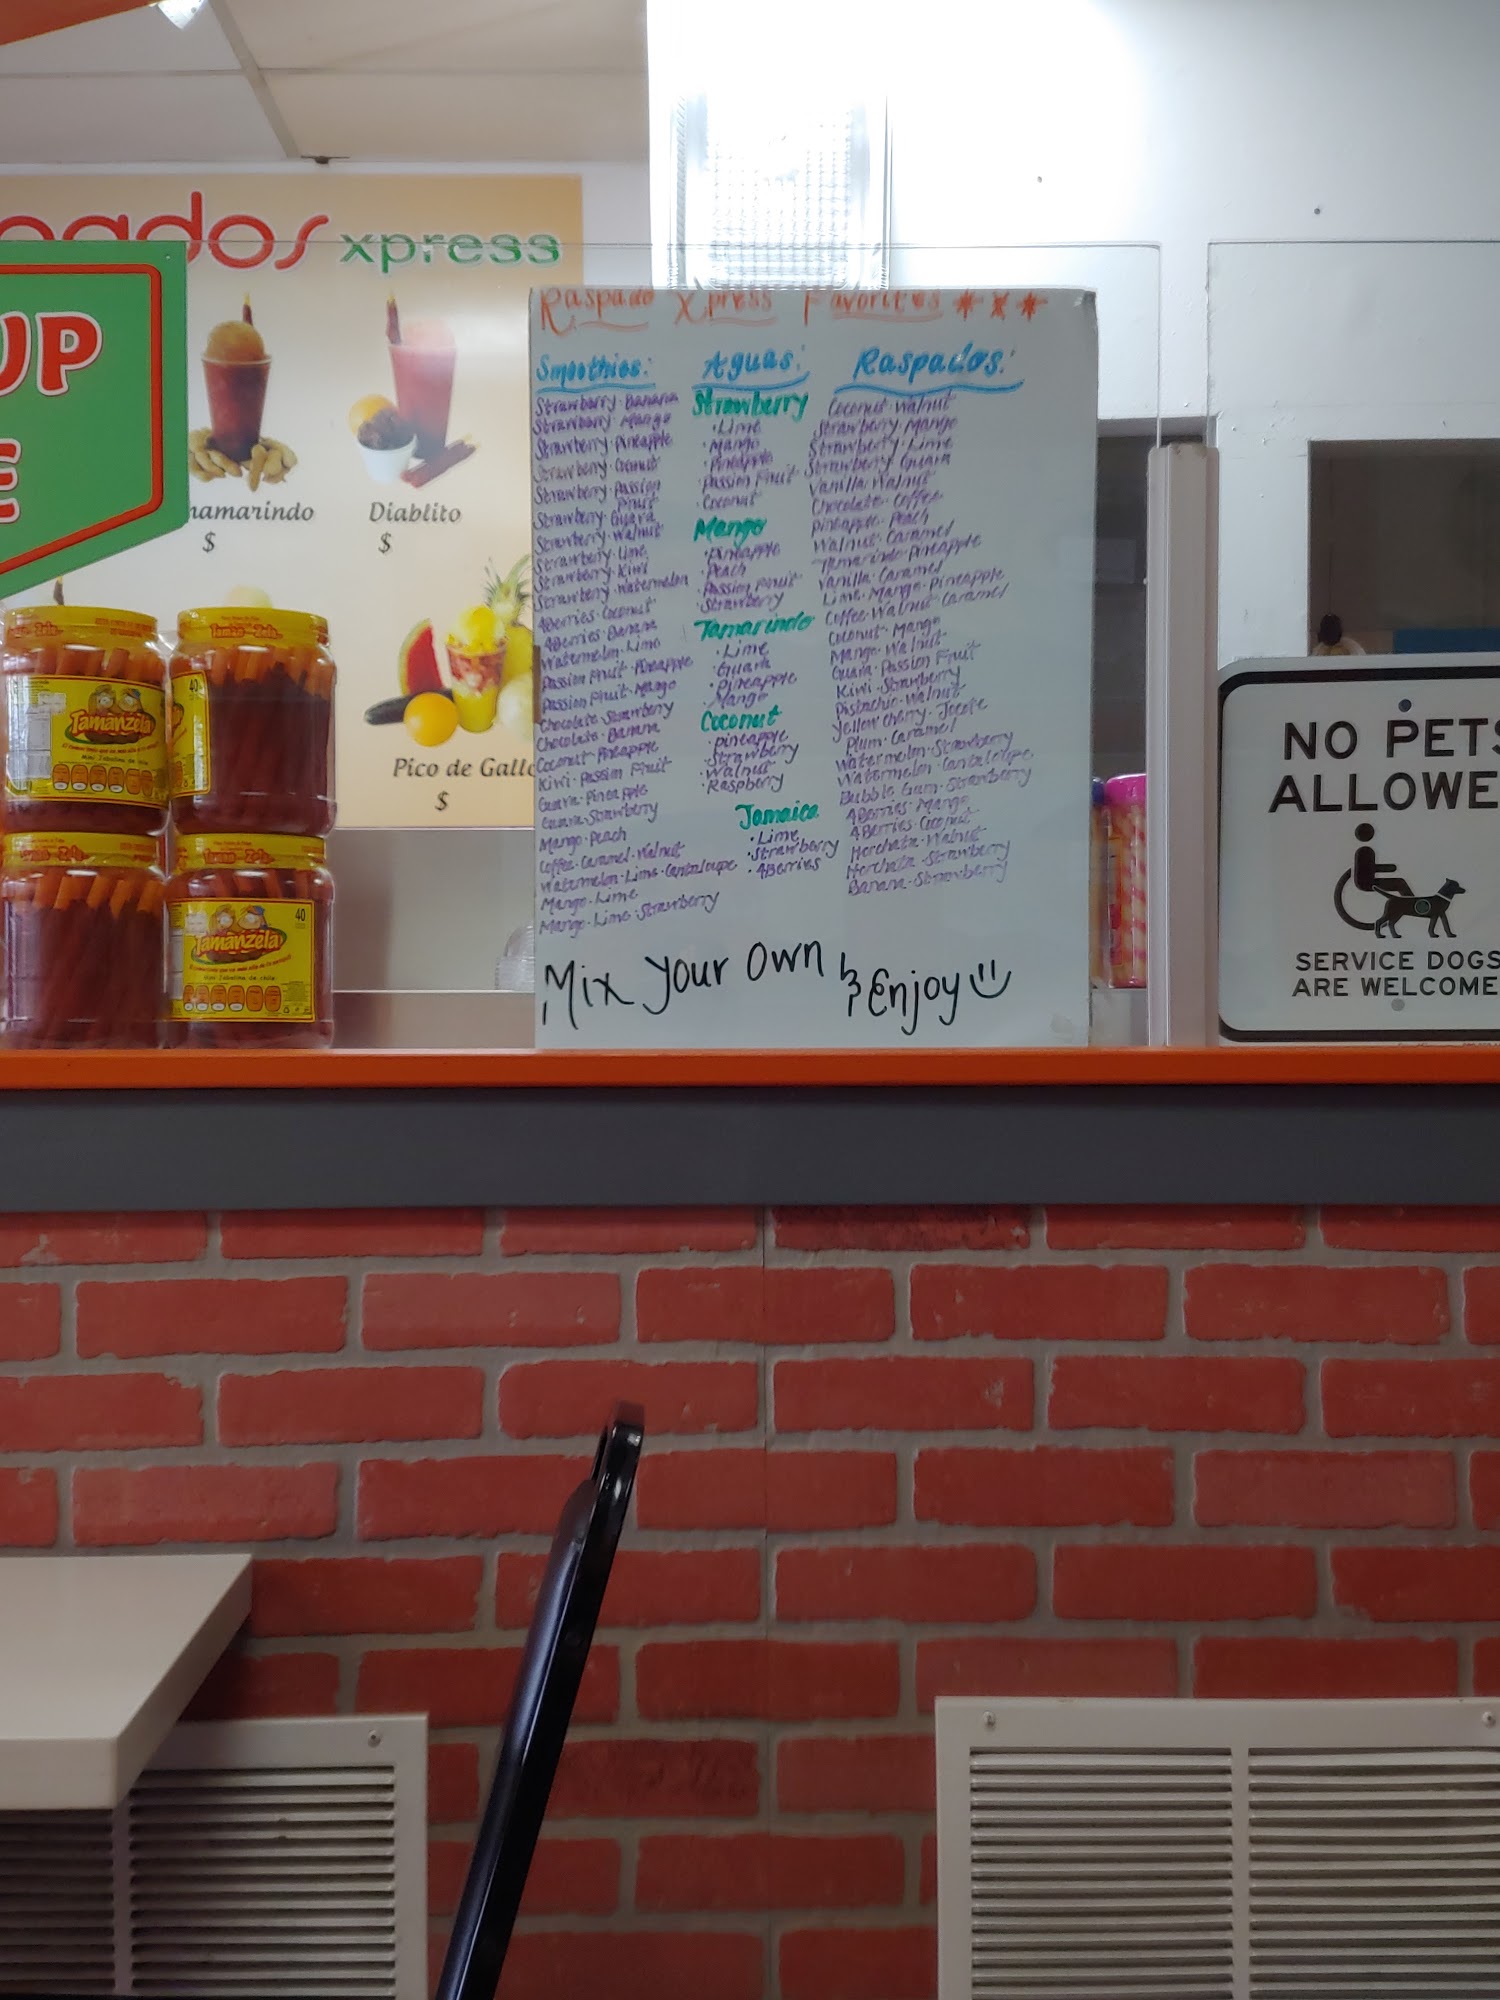 ogados xpress
UP
E
namarindo
$
Diablito
$
Pico de Gallo
$
Raspado Xpress Favorites ***
Smoothies:
Strawberry·Banana
Strawberry·Mango
Strawberry·Pineapple
Strawberry·Coconut
Strawberry·Passion
Fruit
Strawberry·Guava
Strawberry·Walnut
Strawberry·Lime
Strawberry·Kiwi
Strawberry·Watermelon
4Berries·Coconut
4Berries·Banana
Watermelon·Lime
Passion Fruit·Pineapple
Passion Fruit·Mango
Chocolate·Strawberry
Chocolate·Banana
Coconut·Pineapple
Kiwi·Passion Fruit
Guava·Pineapple
Guava·Strawberry
Mango·Peach
Coffee·Caramel·Walnut
Watermelon·Lime·Cantaloupe
Mango·Lime
Mango·Lime·Strawberry
Aguas:
Strawberry
·Lime
·Mango
·Pineapple
·Passion Fruit
·Coconut
Mango
·Pineapple
·Peach
·Passion Fruit
·Strawberry
Tamarindo
·Lime
·Guava
·Pineapple
·Mango
Coconut
·Pineapple
·Strawberry
·Walnut
·Raspberry
Jamaica
·Lime
·Strawberry
·4Berries
Raspados:
Coconut·Walnut
Strawberry·Mango
Strawberry·Lime
Strawberry·Guava
Vanilla·Walnut
Chocolate·Coffee
Pineapple·Peach
Walnut·Caramel
Tamarindo·Pineapple
Vanilla·Caramel
Lime·Mango·Pineapple
Coffee·Walnut·Caramel
Coconut·Mango
Mango·Walnut
Guava·Passion Fruit
Kiwi·Strawberry
Pistachio·Walnut
Yellow Cherry·Jocote
Plum·Caramel
Watermelon·Strawberry
Watermelon·Cantaloupe
Bubble Gum·Strawberry
4Berries·Mango
4Berries·Coconut
Horchata·Walnut
Horchata·Strawberry
Banana·Strawberry
Mix Your Own & Enjoy
Tama-Zela
Tama-Zela
Tamanzela
40
Tama-Zela
Tama-Zela
Tamanzela
40
NO PETS
ALLOWE
SERVICE DOGS
ARE WELCOME